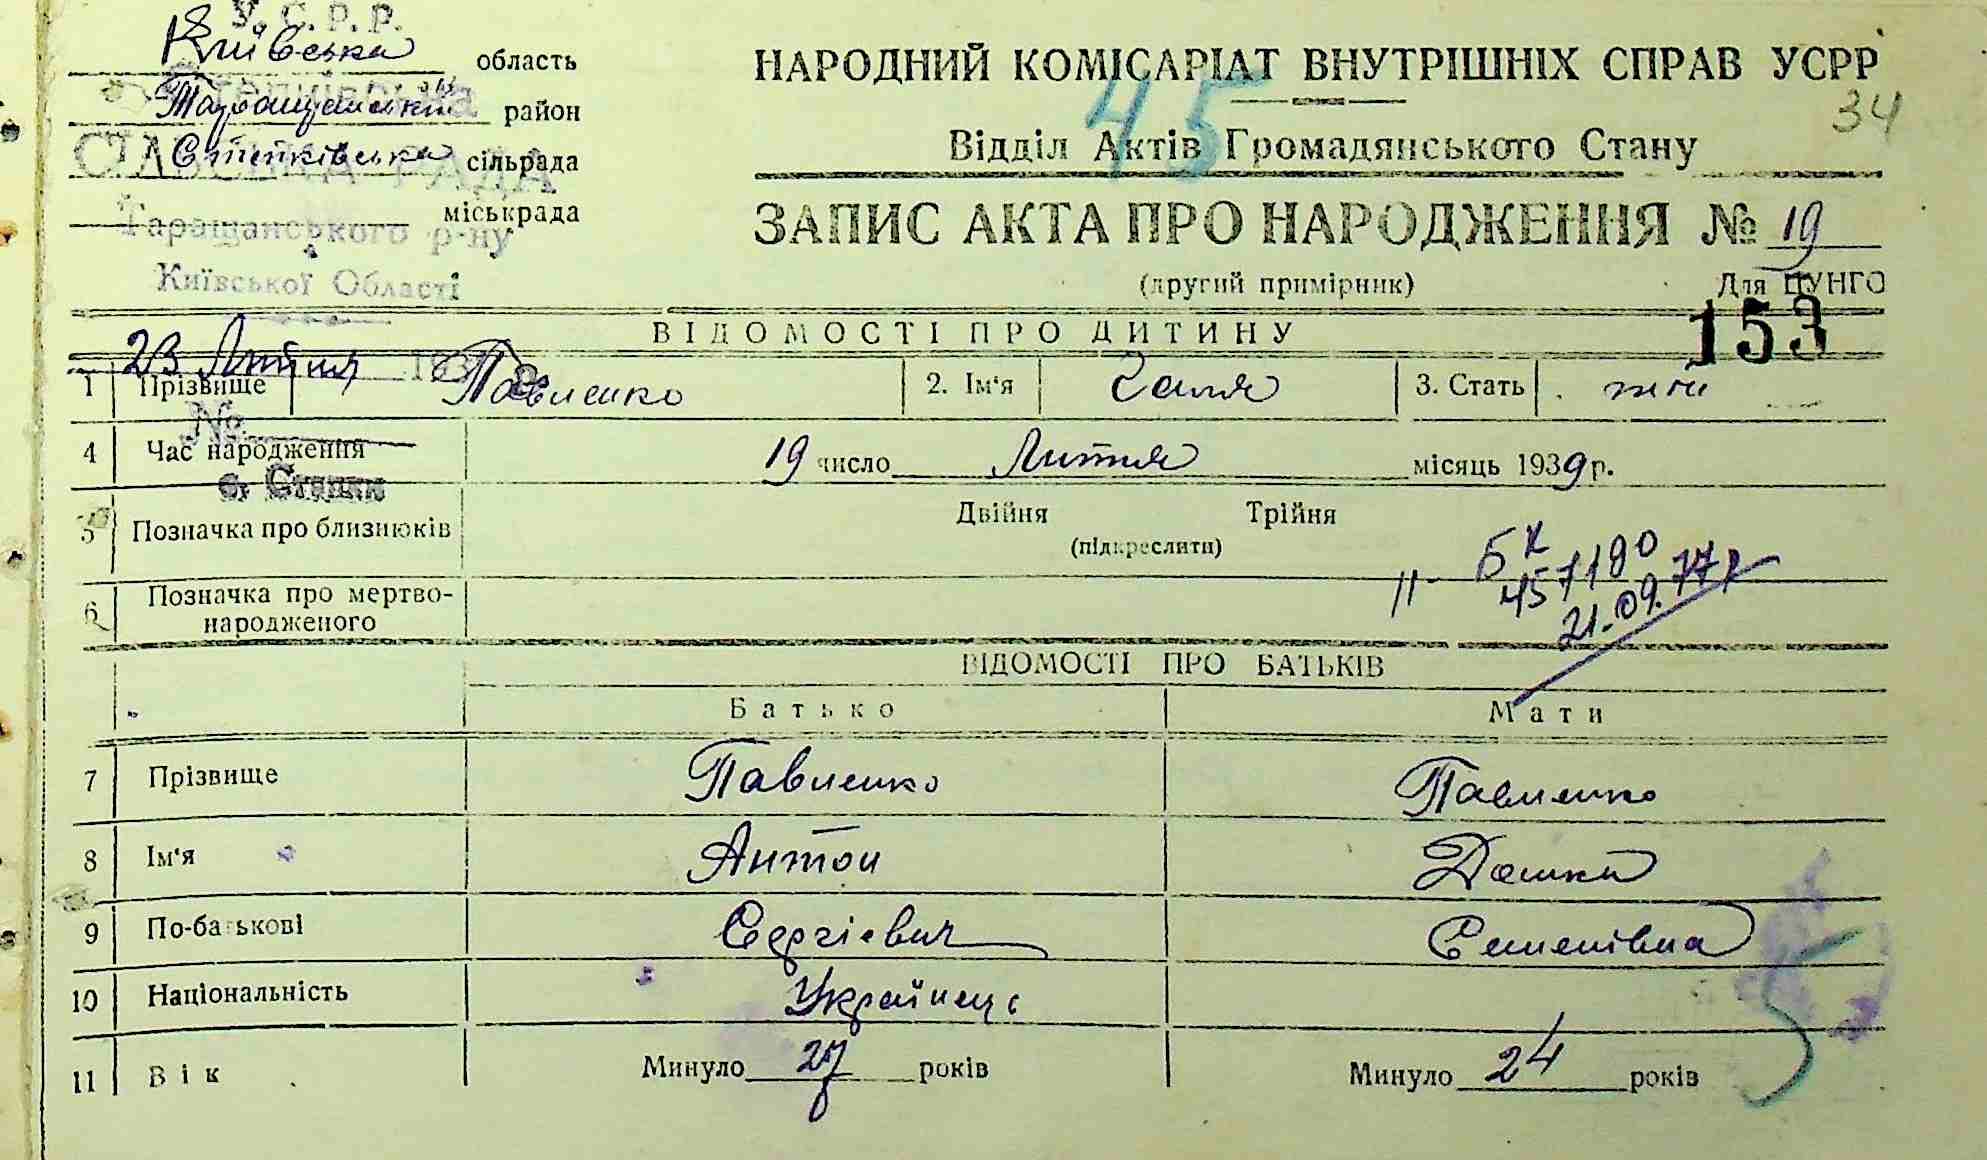 У. С. Р. Р.
Київська область
Таращанський район
Степківська сільрада
СІЛЬСЬКА РАДА
міськрада
Таращанського р-ну
Київської Області
23 Лютня 193
№
с. Степки
НАРОДНИЙ КОМІСАРІАТ ВНУТРІШНІХ СПРАВ УСРР
45
34
Відділ Актів Громадянського Стану
ЗАПИС АКТА ПРО НАРОДЖЕННЯ № 19
(другий примірник) Для ЦУНГО
153
ВІДОМОСТІ ПРО ДИТИНУ
1 Прізвище Павленко 2. Ім'я Галя 3. Стать жін
4 Час народження 19 число Лютня місяць 1939 р.
5 Позначка про близнюків Двійня Трійня
(підкреслити)
6 Позначка про мертво-
народженого
457190
21.09.77р
ВІДОМОСТІ ПРО БАТЬКІВ
Батько Мати
7 Прізвище Павленко Павленко
8 Ім'я Антон Дашка
9 По-батькові Сергієвич Семенівна
10 Національність Українець
11 Вік Минуло 27 років Минуло 24 років